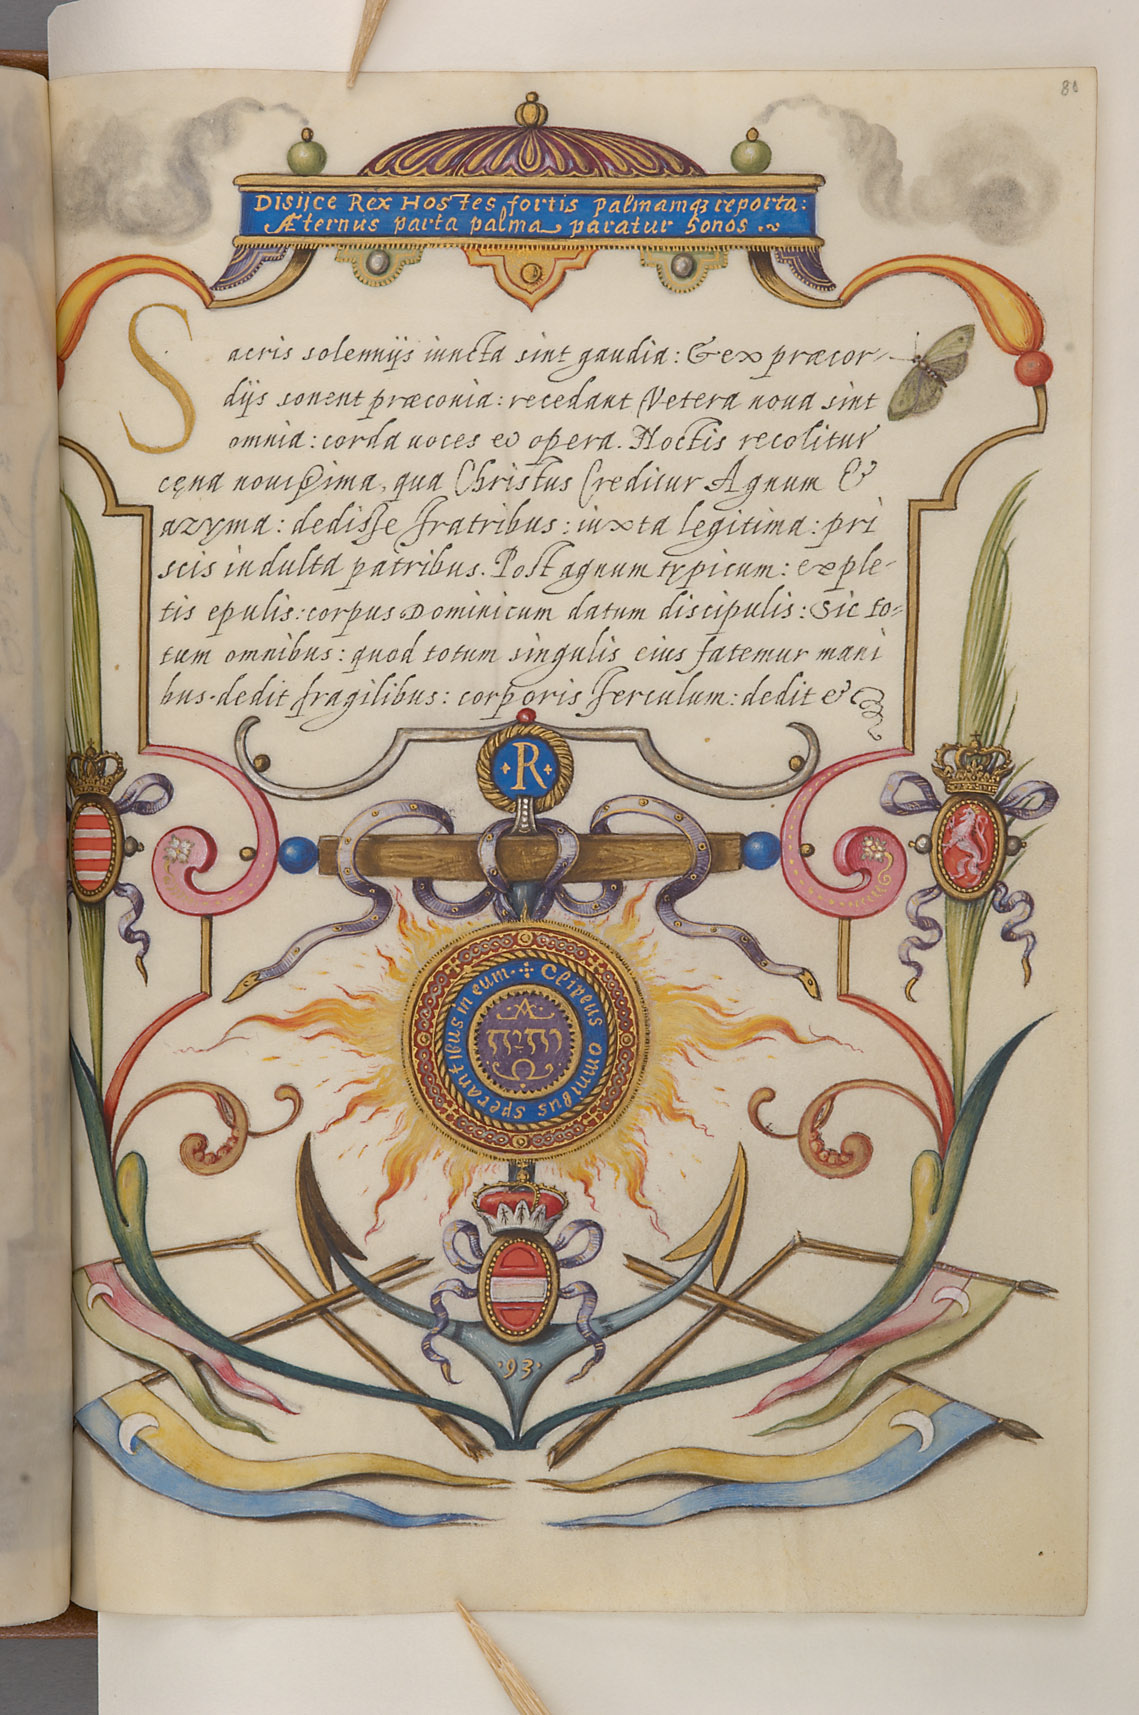 80
Disijce Rex Hostes fortis palmamqꝫ reporta:
Æternus parta palma paratur honos.
Sacris solemnijs iuncta sint gaudia: & ex præcor-
dijs sonent præconia: recedant Vetera noua sint
omnia: corda uoces et opera. Noctis recolitur
cęna nouißima, qua Christus Creditur Agnum &
azyma: dedisse fratribus: iuxta legitima: pri
scis indulta patribus. Post agnum typicum: exple-
tis epulis: corpus Dominicum datum discipulis: Sic to-
tum omnibus: quod totum singulis eius fatemur mani
bus. dedit fragilibus: corporis ferculum: dedit &
R
Clipeus omnibus sperantibus in eum.
A
יהוה
Ω
.93.